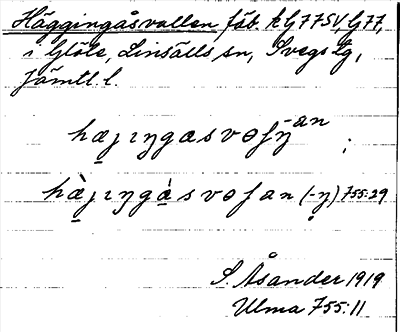 Häggingåsvallen, fäb. k G77SV, G77,
i Glöte, Linsälls sn, Svegs tg,
Jämtl. l.
hæjıŋgasvoſŋ-an ;
hæ̀jıŋgàsvoſan (-ŋ) 755:29
S. Åsander 1919
Ulma 755:11